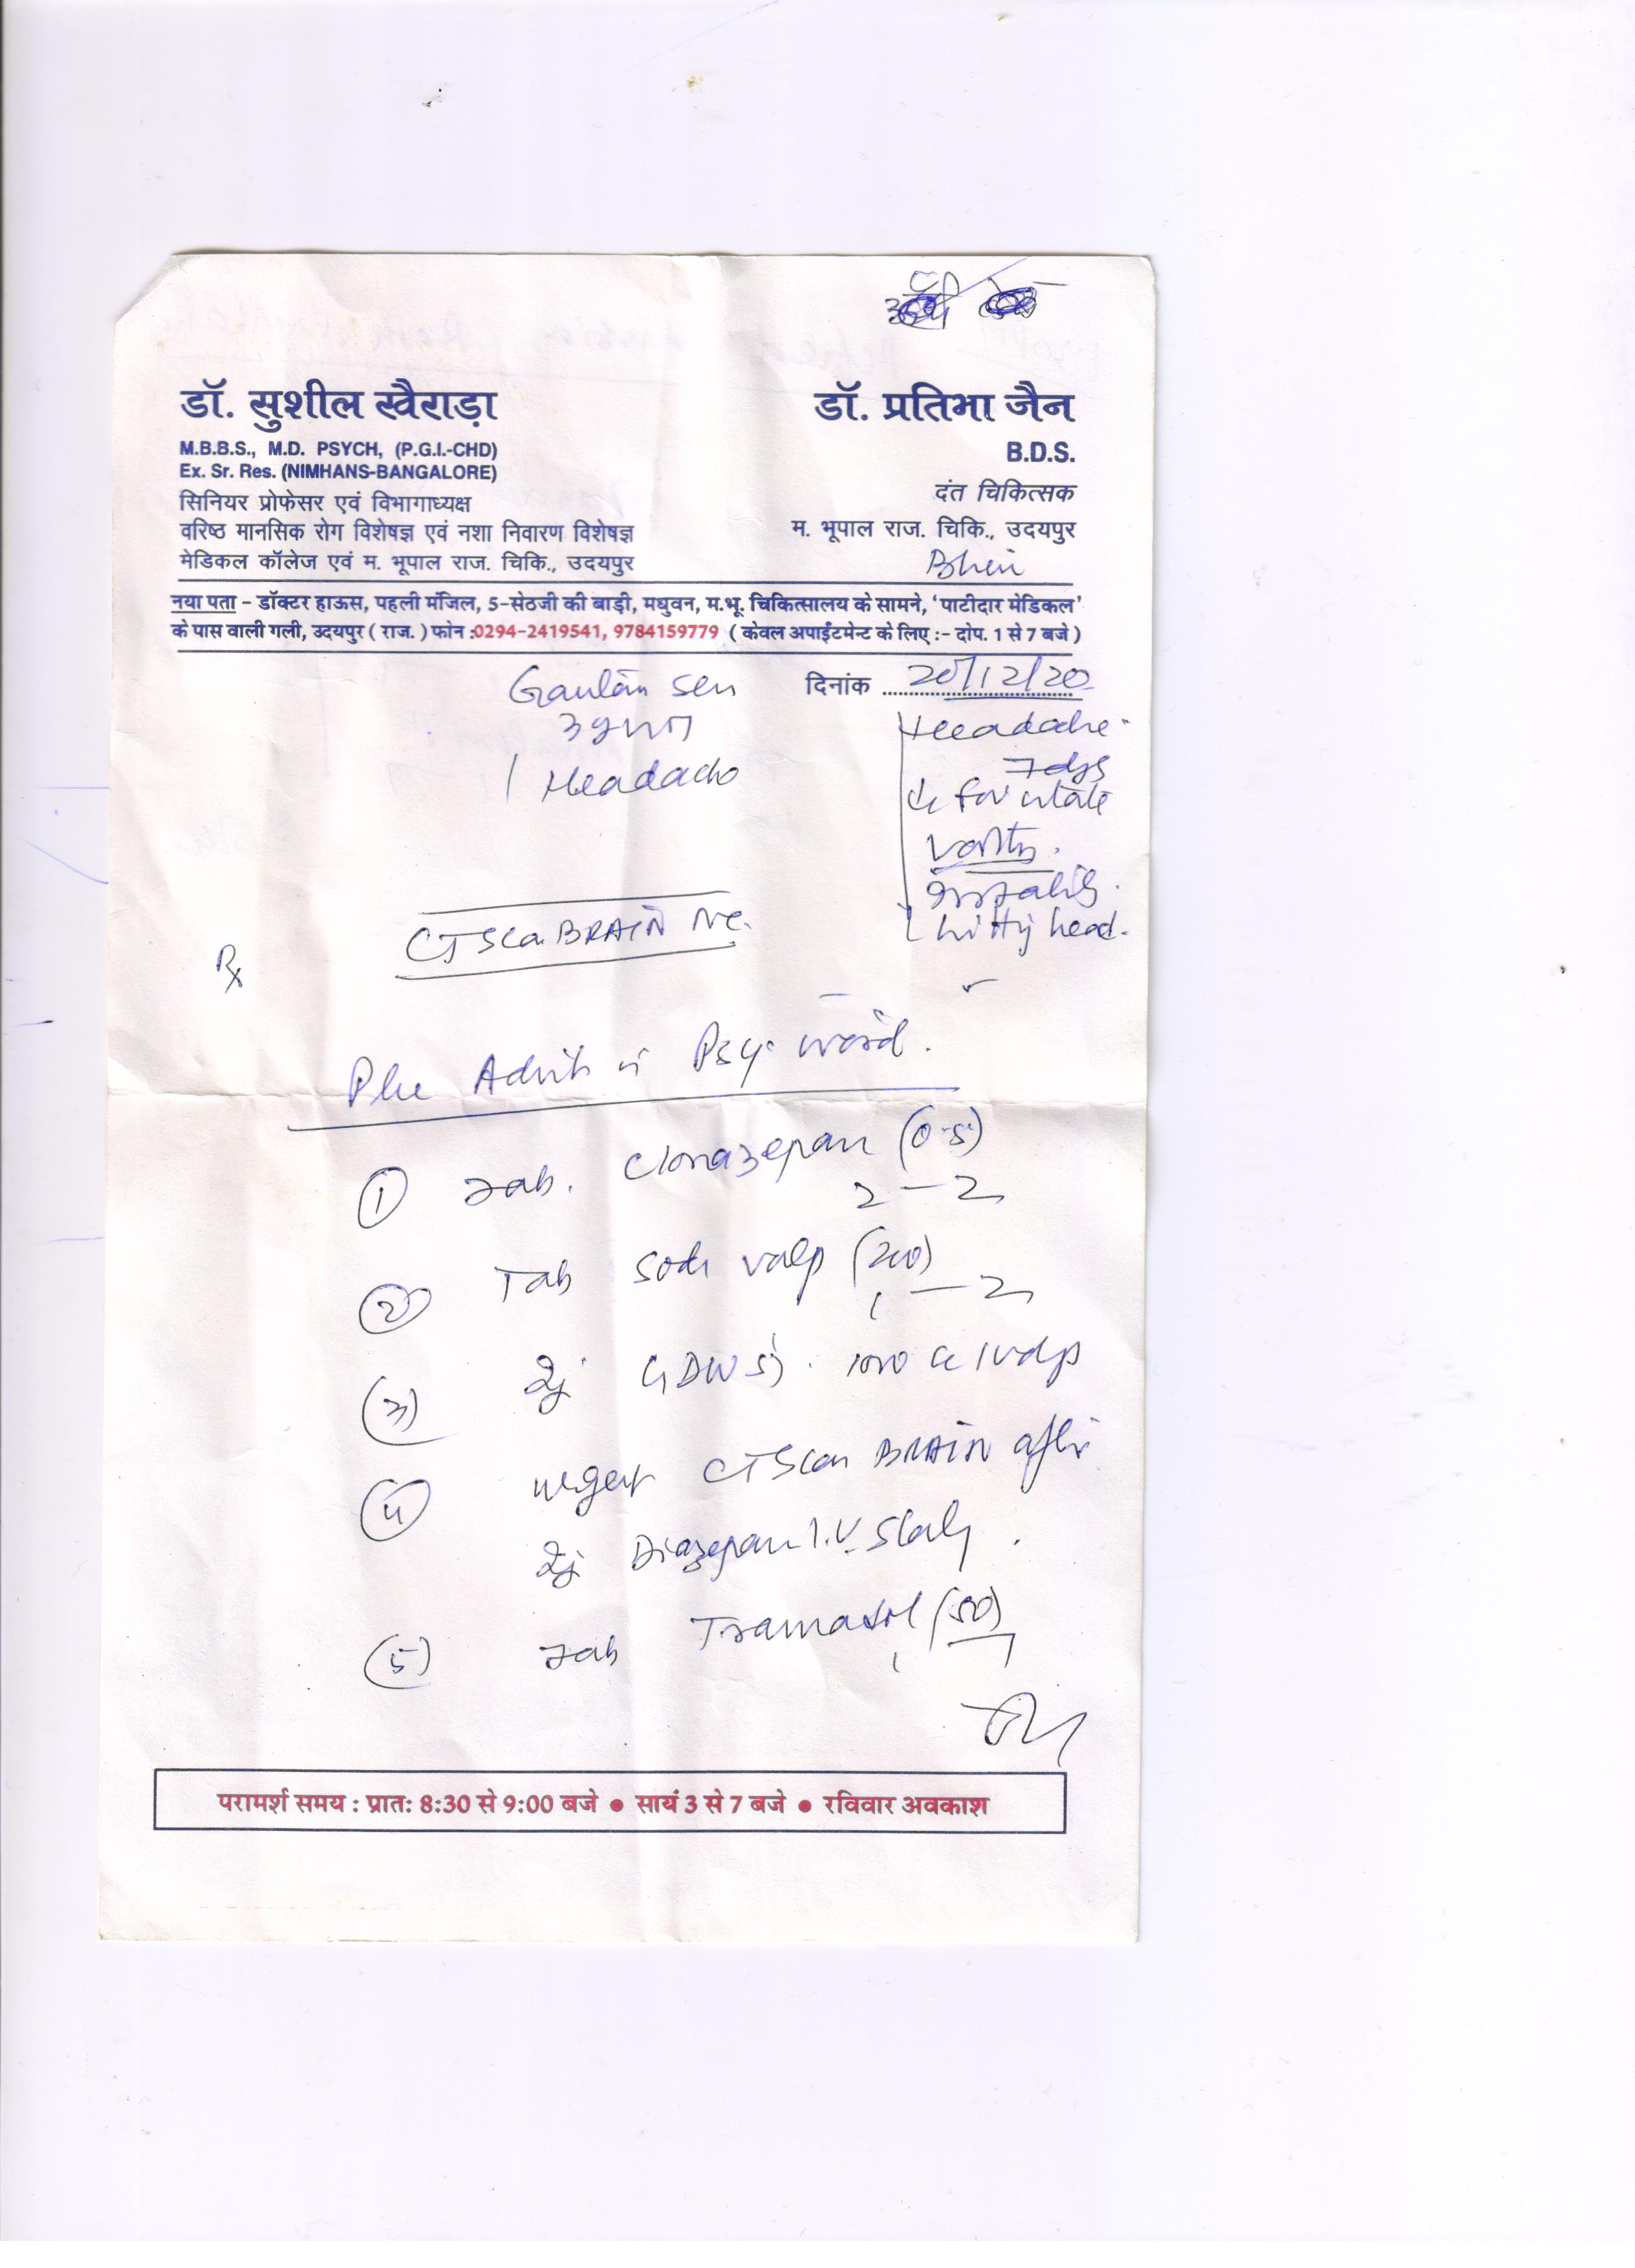 डॉ. सुशील खैराड़ा
M.B.B.S., M.D. PSYCH, (P.G.I.-CHD)
Ex. Sr. Res. (NIMHANS-BANGALORE)
सिनियर प्रोफेसर एवं विभागाध्यक्ष
वरिष्ठ मानसिक रोग विशेषज्ञ एवं नशा निवारण विशेषज्ञ
मेडिकल कॉलेज एवं म. भूपाल राज. चिकि., उदयपुर
डॉ. प्रतिभा जैन
B.D.S.
दंत चिकित्सक
म. भूपाल राज. चिकि., उदयपुर
नया पता – डॉक्टर हाऊस, पहली मंजिल, 5-सेठजी की बाड़ी, मधुवन, म.भू. चिकित्सालय के सामने, 'पाटीदार मेडिकल'
के पास वाली गली, उदयपुर ( राज. ) फोन :0294-2419541, 9784159779 ( केवल अपाईंटमेन्ट के लिए :- दोप. 1 से 7 बजे )
दिनांक 20/12/20
Sen
Headache
Headache
7 dys
hitty head.
CT Scan BRAIN NC.
Rx
Admit in Psy. Ward.
① Tab. Clonazepam (0.5)
2 — 2
② Tab Sod valp (200)
1 — 2
③ Inj
④ urgent CT Scan BRAIN after
Inj Diazepam I.V.
⑤ Tab Tramadol (50)
परामर्श समय : प्रातः 8:30 से 9:00 बजे ● सायं 3 से 7 बजे ● रविवार अवकाश